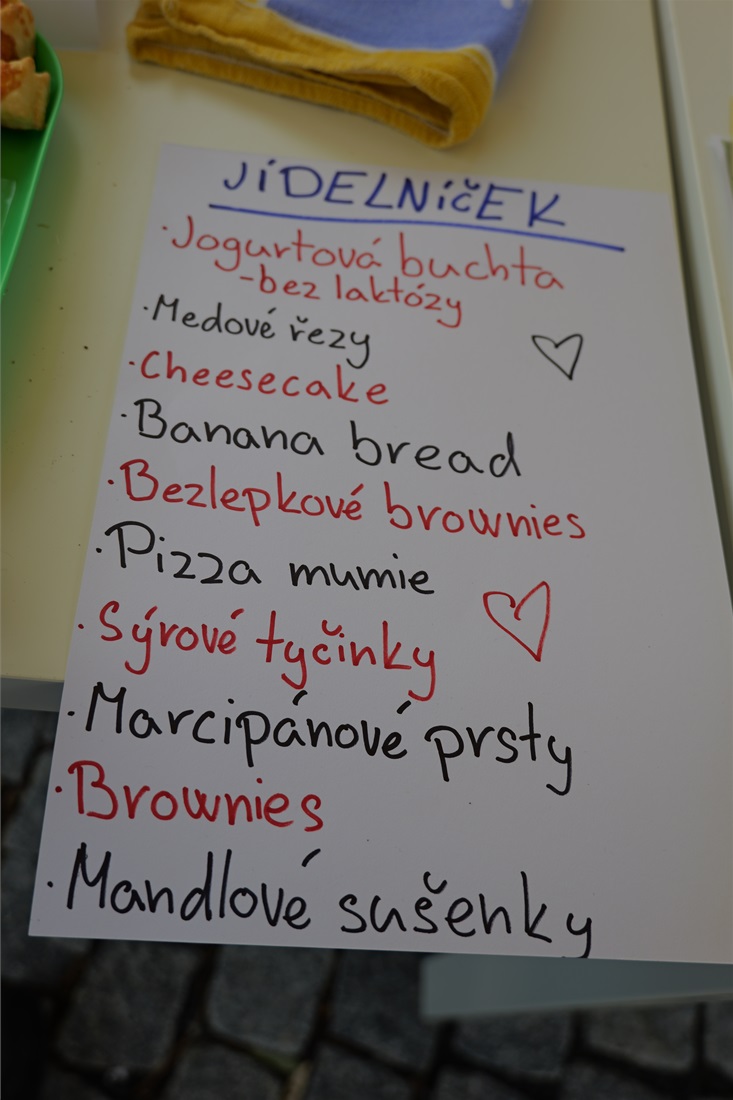 JÍDELNÍČEK
·Jogurtová buchta
-bez laktózy
·Medové řezy
·Cheesecake
·Banana bread
·Bezlepkové brownies
·Pizza mumie
·Sýrové tyčinky
·Marcipánové prsty
·Brownies
·Mandlové sušenky